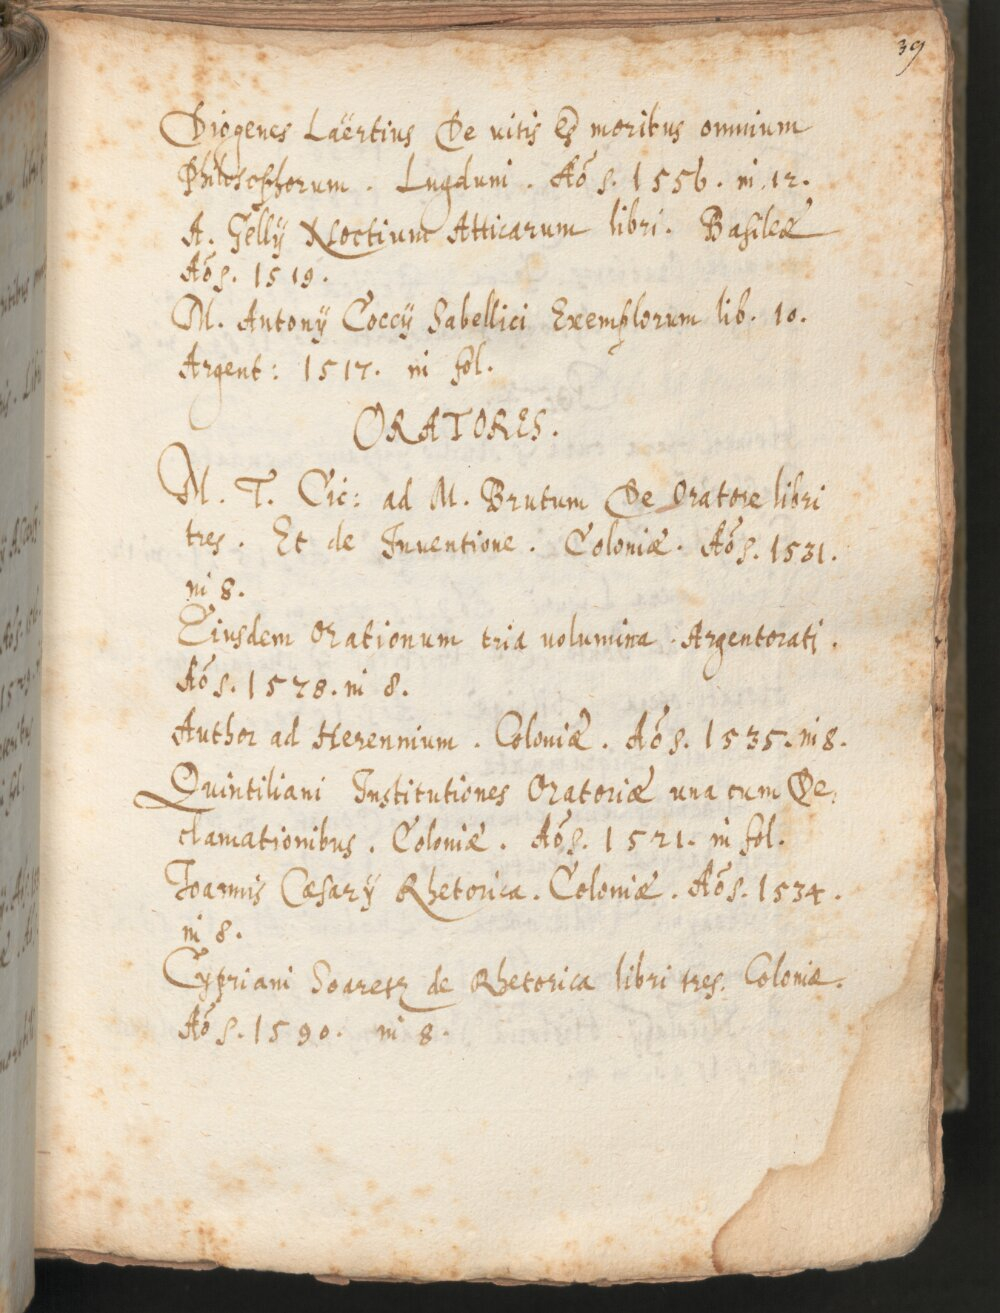 39
Diogenes Laërtius De vitis & moribus omnium
Philosophorum . Lugduni . Aõ S. 1556. in 12.
A. Gellÿ Noctium Atticarum libri . Basileæ
Aõ S. 1519.
M. Antonÿ Coccÿ Sabellici Exemplorum lib. 10.
Argent: 1517. in fol.
ORATORES.
M. T. Cic: ad M. Brutum De Oratore libri
tres . Et de Inventione . Coloniæ . Aõ S. 1531.
in 8.
Eiusdem Orationum tria volumina . Argentorati .
Aõ S. 1528. in 8.
Author ad Herennium . Coloniæ . Aõ S. 1535. in 8.
Quintiliani Institutiones Oratoriæ una cum De:
clamationibus . Coloniæ . Aõ S. 1521. in fol.
Joannis Cæsarÿ Rhetorica . Coloniæ . Aõ S. 1534 .
in 8.
Cypriani Soaretz de Rhetorica libri tres. Coloniæ.
Aõ S. 1590. in 8.